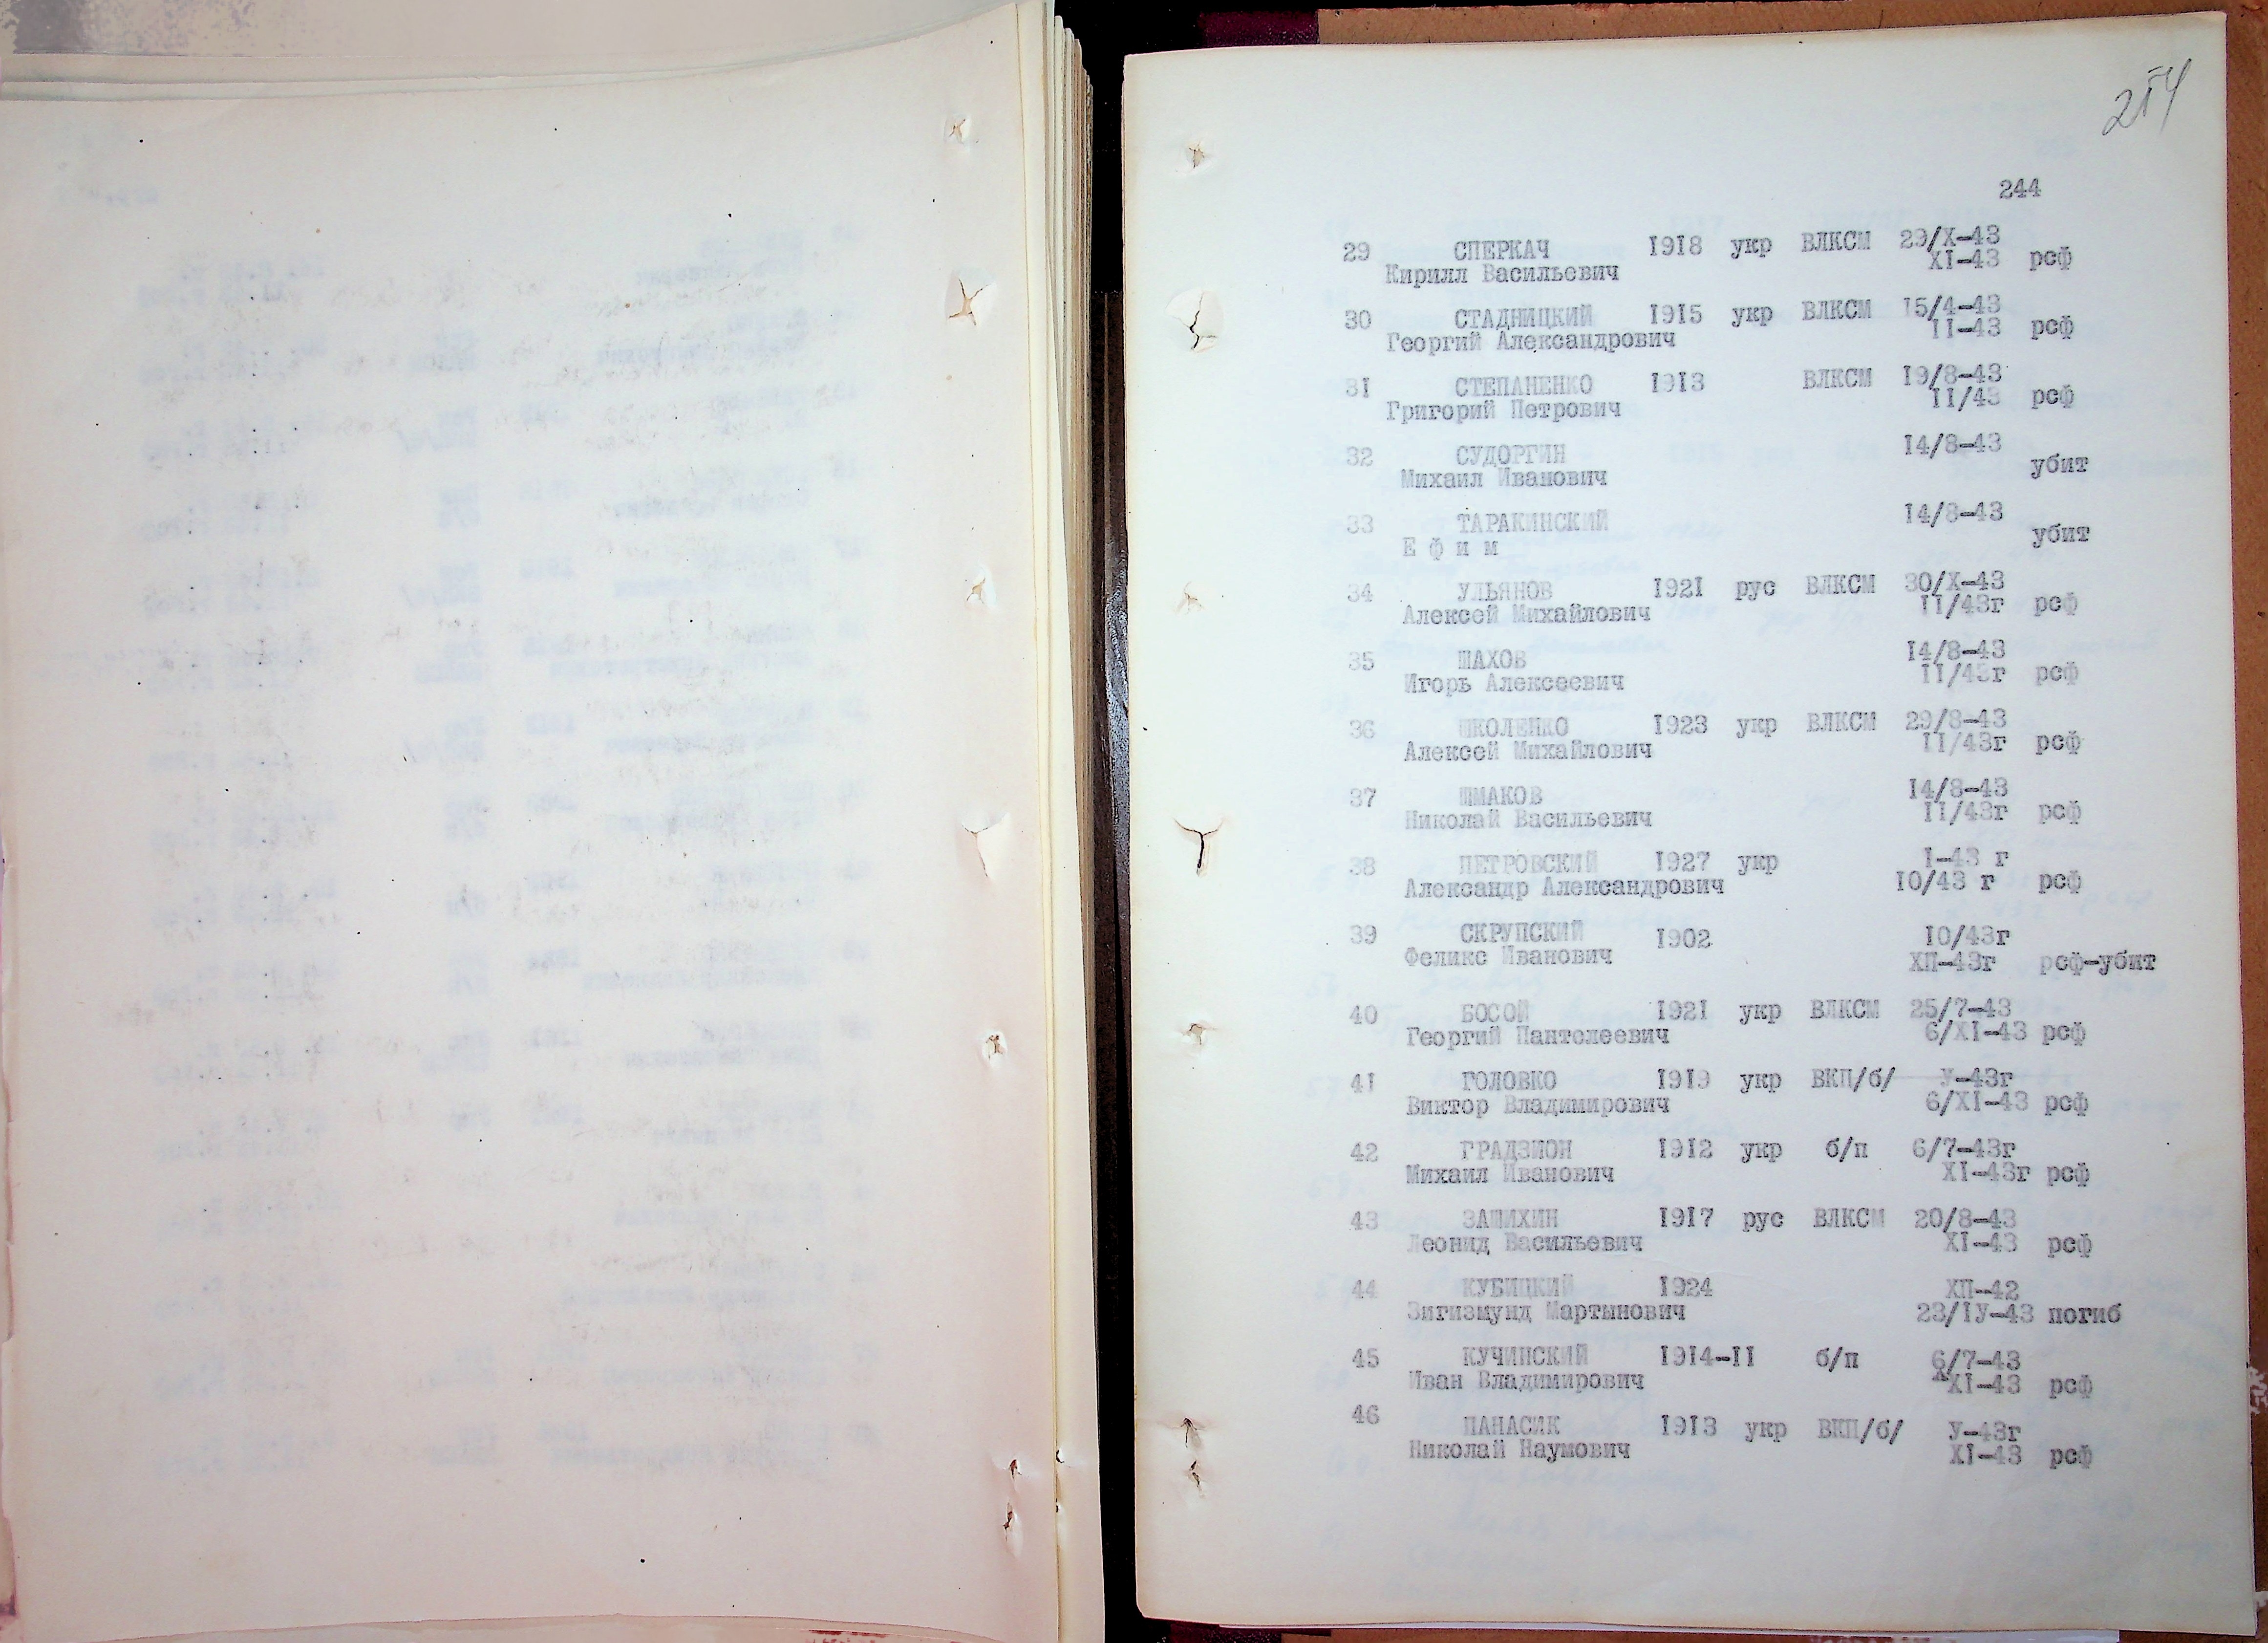 254
244
29 СПЕРКАЧ 1918 укр ВЛКСМ 29/X-43
Кирилл Васильевич XI-43 рсф
30 СТАДНИЦКИЙ 1915 укр ВЛКСМ 15/4-43
Георгий Александрович II-43 рсф
31 СТЕПАНЕНКО 1913 ВЛКСМ 19/8-43
Григорий Петрович II/43 рсф
32 СУДОРГИН 14/8-43
Михаил Иванович убит
33 ТАРАКИНСКИЙ 14/8-43
Е ф и м убит
34 УЛЬЯНОВ 1921 рус ВЛКСМ 30/X-43
Алексей Михайлович II/43г рсф
35 ШАХОВ 14/8-43
Игорь Алексеевич II/43г рсф
36 ШКОЛЕНКО 1923 укр ВЛКСМ 29/8-43
Алексей Михайлович II/43г рсф
37 ШМАКОВ 14/8-43
Николай Васильевич II/43г рсф
38 ПЕТРОВСКИЙ 1927 укр I-43 г
Александр Александрович 10/43 г рсф
39 СКРУПСКИЙ 1902 10/43г
Феликс Иванович ХП-43г рсф-убит
40 БОСОЙ 1921 укр ВЛКСМ 25/7-43
Георгий Пантелеевич 6/XI-43 рсф
41 ГОЛОВКО 1919 укр ВКП/б/ У-43г
Виктор Владимирович 6/XI-43 рсф
42 ГРАДЗИОН 1912 укр б/п 6/7-43г
Михаил Иванович XI-43г рсф
43 ЗАШИХИН 1917 рус ВЛКСМ 20/8-43
Леонид Васильевич XI-43 рсф
44 КУБИЦКИЙ 1924 ХП-42
Зигизмунд Мартынович 23/IУ-43 погиб
45 КУЧИНСКИЙ 1914-II б/п 6/7-43
Иван Владимирович XI-43 рсф
46 ПАНАСИК 1913 укр ВКП/б/ У-43г
Николай Наумович XI-43 рсф